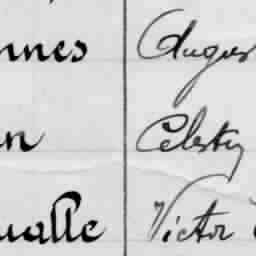 nnes Augus
n Celestin
ualle Victor